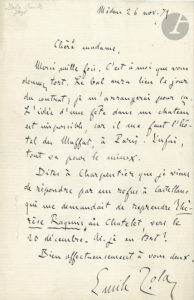 Médan 26 nov. 79
Chère madame,
Merci mille fois. C'est à moi que vous
donnez tort. Le bal aura lieu le jour
du contrat; je m'arrangerai pour ça.
L'idée d'une fête dans un château
est impossible, car il me faut l'hô-
tel des Muffat, à Paris. Enfin,
tout va pour le mieux.
Dites à Charpentier que je viens
de répondre par un refus à Castellano
qui me demandait de reprendre Thé-
rèse Raquin, au Chatelet vers le
20 décembre.
Bien affectueusement à vous deux.
Emile Zola